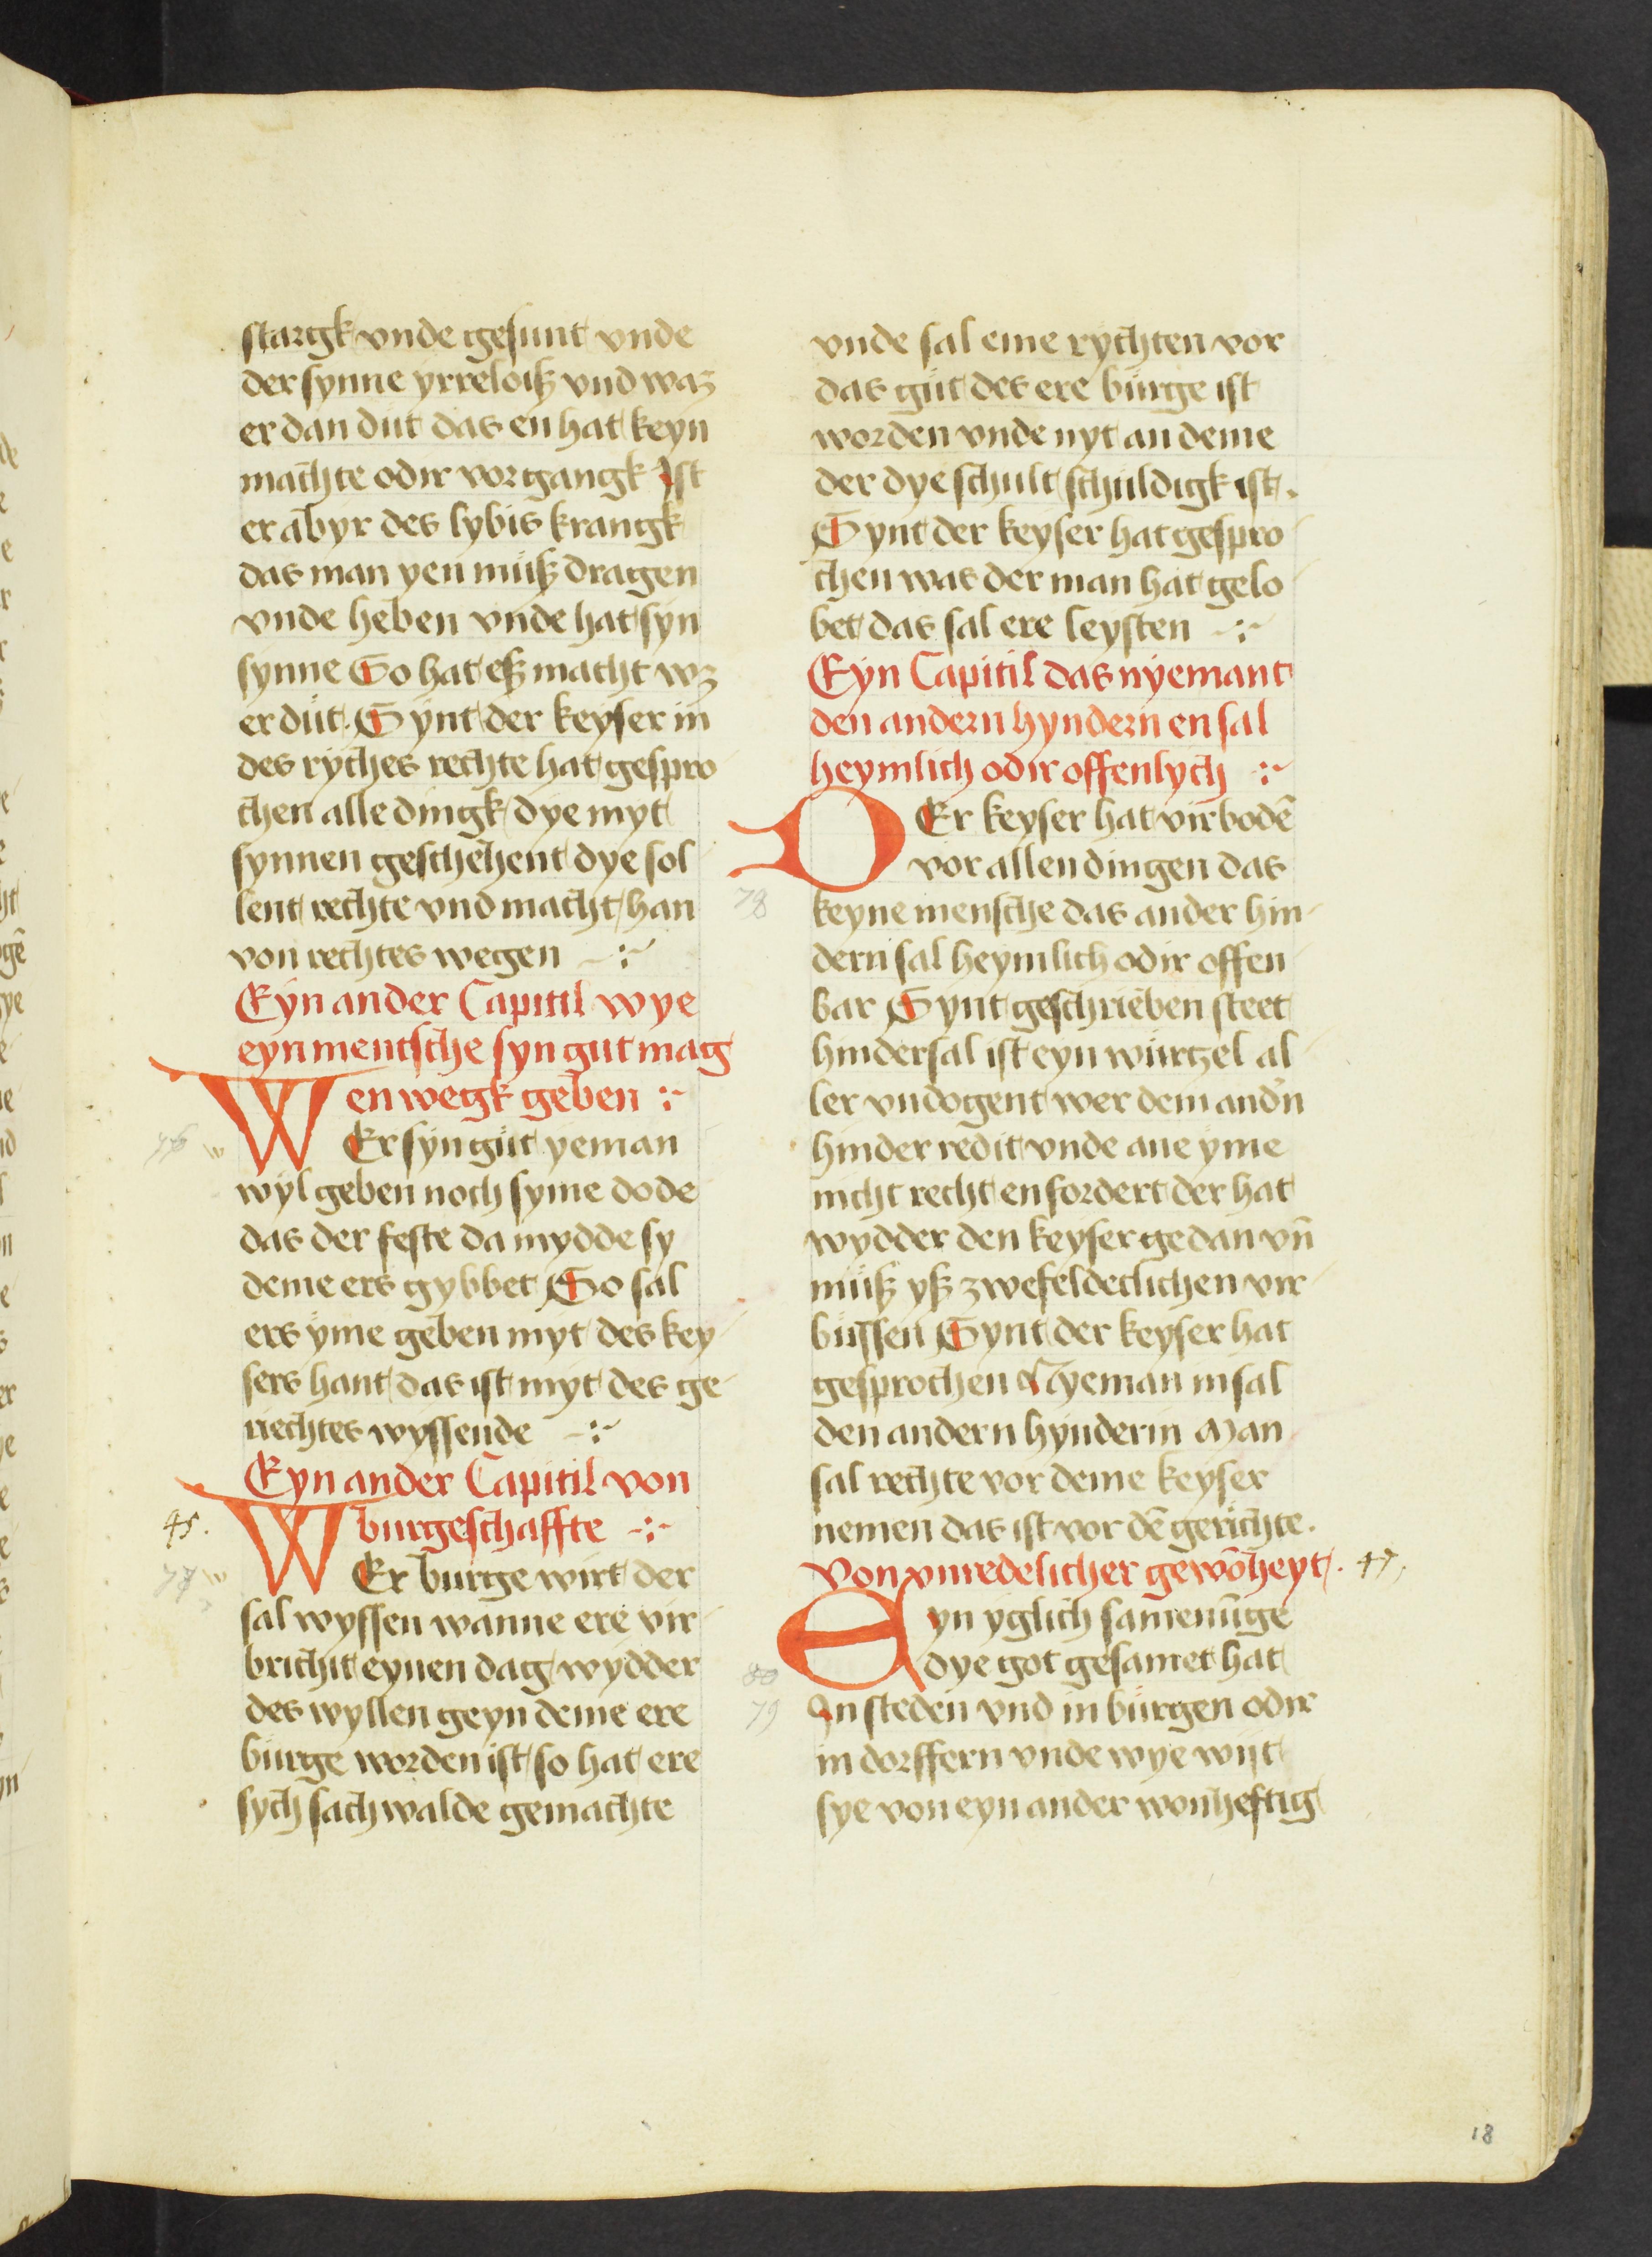 stargk vnde gesunt vnde
der synne yrreloiß vnd waz
er dan dut das en hat keyn
machte odir vorgangk Ist
er abyr des lybis krangk
das man yen müß dragen
vnde heben vnde hat syn
synne So hat eß macht wz
er düt. Synt der keyser in
des ryches rechte hat gespro
chen alle dingk dye myt
synnen geschehent dye sol
lent rechte vnd macht han
von rechtes wegen
Eyn ander Capittil wye
eyn mentsche syn gut mag
en wegk geben
WEr syn güt yeman
wyl geben noch syme dode
das der feste da mydde sy
deme ers gybbet So sal
ers yme geben myt des key
sers hant das ist myt des ge
riechtes wyssende
Eyn ander Capitil von
45. burgeschaffte
WEr burge wirt der
sal wyssen wanne ere vir
brichit eynen dag wydder
des wyllen geyn deme ere
bürge worden ist so hat ere
sych sachwalde gemachte
vnde sal eme rychten vor
das güt des ere bürge ist
worden vnde nyt an deme
der dye schult schuldigk ist.
Synt der keyser hat gespro
chen was der man hat gelo
bet das sal ere leysten
Eyn Capitil das nyemant
den andern hyndern en sal
heymlich odir offenlych
DEr keyser hat virbodē
vor allen dingen das
78 keyne mensche das ander hin
dern sal heymlich odir offen
bar Synt geschrieben steet
hindersal ist eyn würtzel al
ler vndogent wer dem andn
hinder redit vnde ane yme
nicht recht en fordert der hat
wydder den keyser gedan vn̄
müß yß zwefeldeclichen vir
büssen Synt der keyser hat
gesprochen Nyeman insal
den andern hynderin Man
sal rechte vor deme keyser
nemen das ist vor dē gerichte.
Von vnredelicher gewōheyt. 47,
Eyn yglich samenūge
80 dye got gesamet hat
79 In steden vnd in bürgen odir
in dorffern vnde wye wijt
sye von eyn ander wonheftig
18